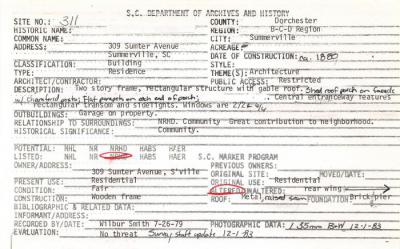 S.C. DEPARTMENT OF ARCHIVES AND HISTORY
SITE NO.: 311 COUNTY: Dorchester
HISTORIC NAME: REGION: B-C-D Region
COMMON NAME: CITY: Summerville
ADDRESS: 309 Sumter Avenue ACREAGE:
Summerville, SC DATE OF CONSTRUCTION: ca. 1880
CLASSIFICATION: Building STYLE:
TYPE: Residence THEME(S): Architecture
ARCHITECT/CONTRACTOR: PUBLIC ACCESS: Restricted
DESCRIPTION: Two story frame, rectangular structure with gable roof. Shed roof porch on facade
w/ chamfered posts; Flat parapets on each end of porch; Central entranceway features
rectangular transom and sidelights. Windows are 2/2 & 4/4
OUTBUILDINGS: Garage on property.
RELATIONSHIP TO SURROUNDINGS: NRHD. Community Great contribution to neighborhood.
HISTORICAL SIGNIFICANCE: Community.
POTENTIAL: NHL NR NRHD HABS HAER
LISTED: NHL NR NRHD HABS HAER S.C. MARKER PROGRAM
OWNER/ADDRESS: PREVIOUS OWNERS:
309 Sumter Avenue, S'ville ORIGINAL SITE: MOVED/DATE:
PRESENT USE: Residential ORIGINAL USE: Residential
CONDITION: Fair ALTERED/UNALTERED: rear wing
CONSTRUCTION: Wooden frame ROOF: Metal, raised seam FOUNDATION: Brick/pier
BIBLIOGRAPHIC & RELATED DATA:
INFORMANT/ADDRESS:
RECORDED BY/DATE: Wilbur Smith 7-26-79 PHOTOGRAPHIC DATA: 1 35mm B&W 12-1-83
EVALUATION: No threat Survey staff update 12-1-83